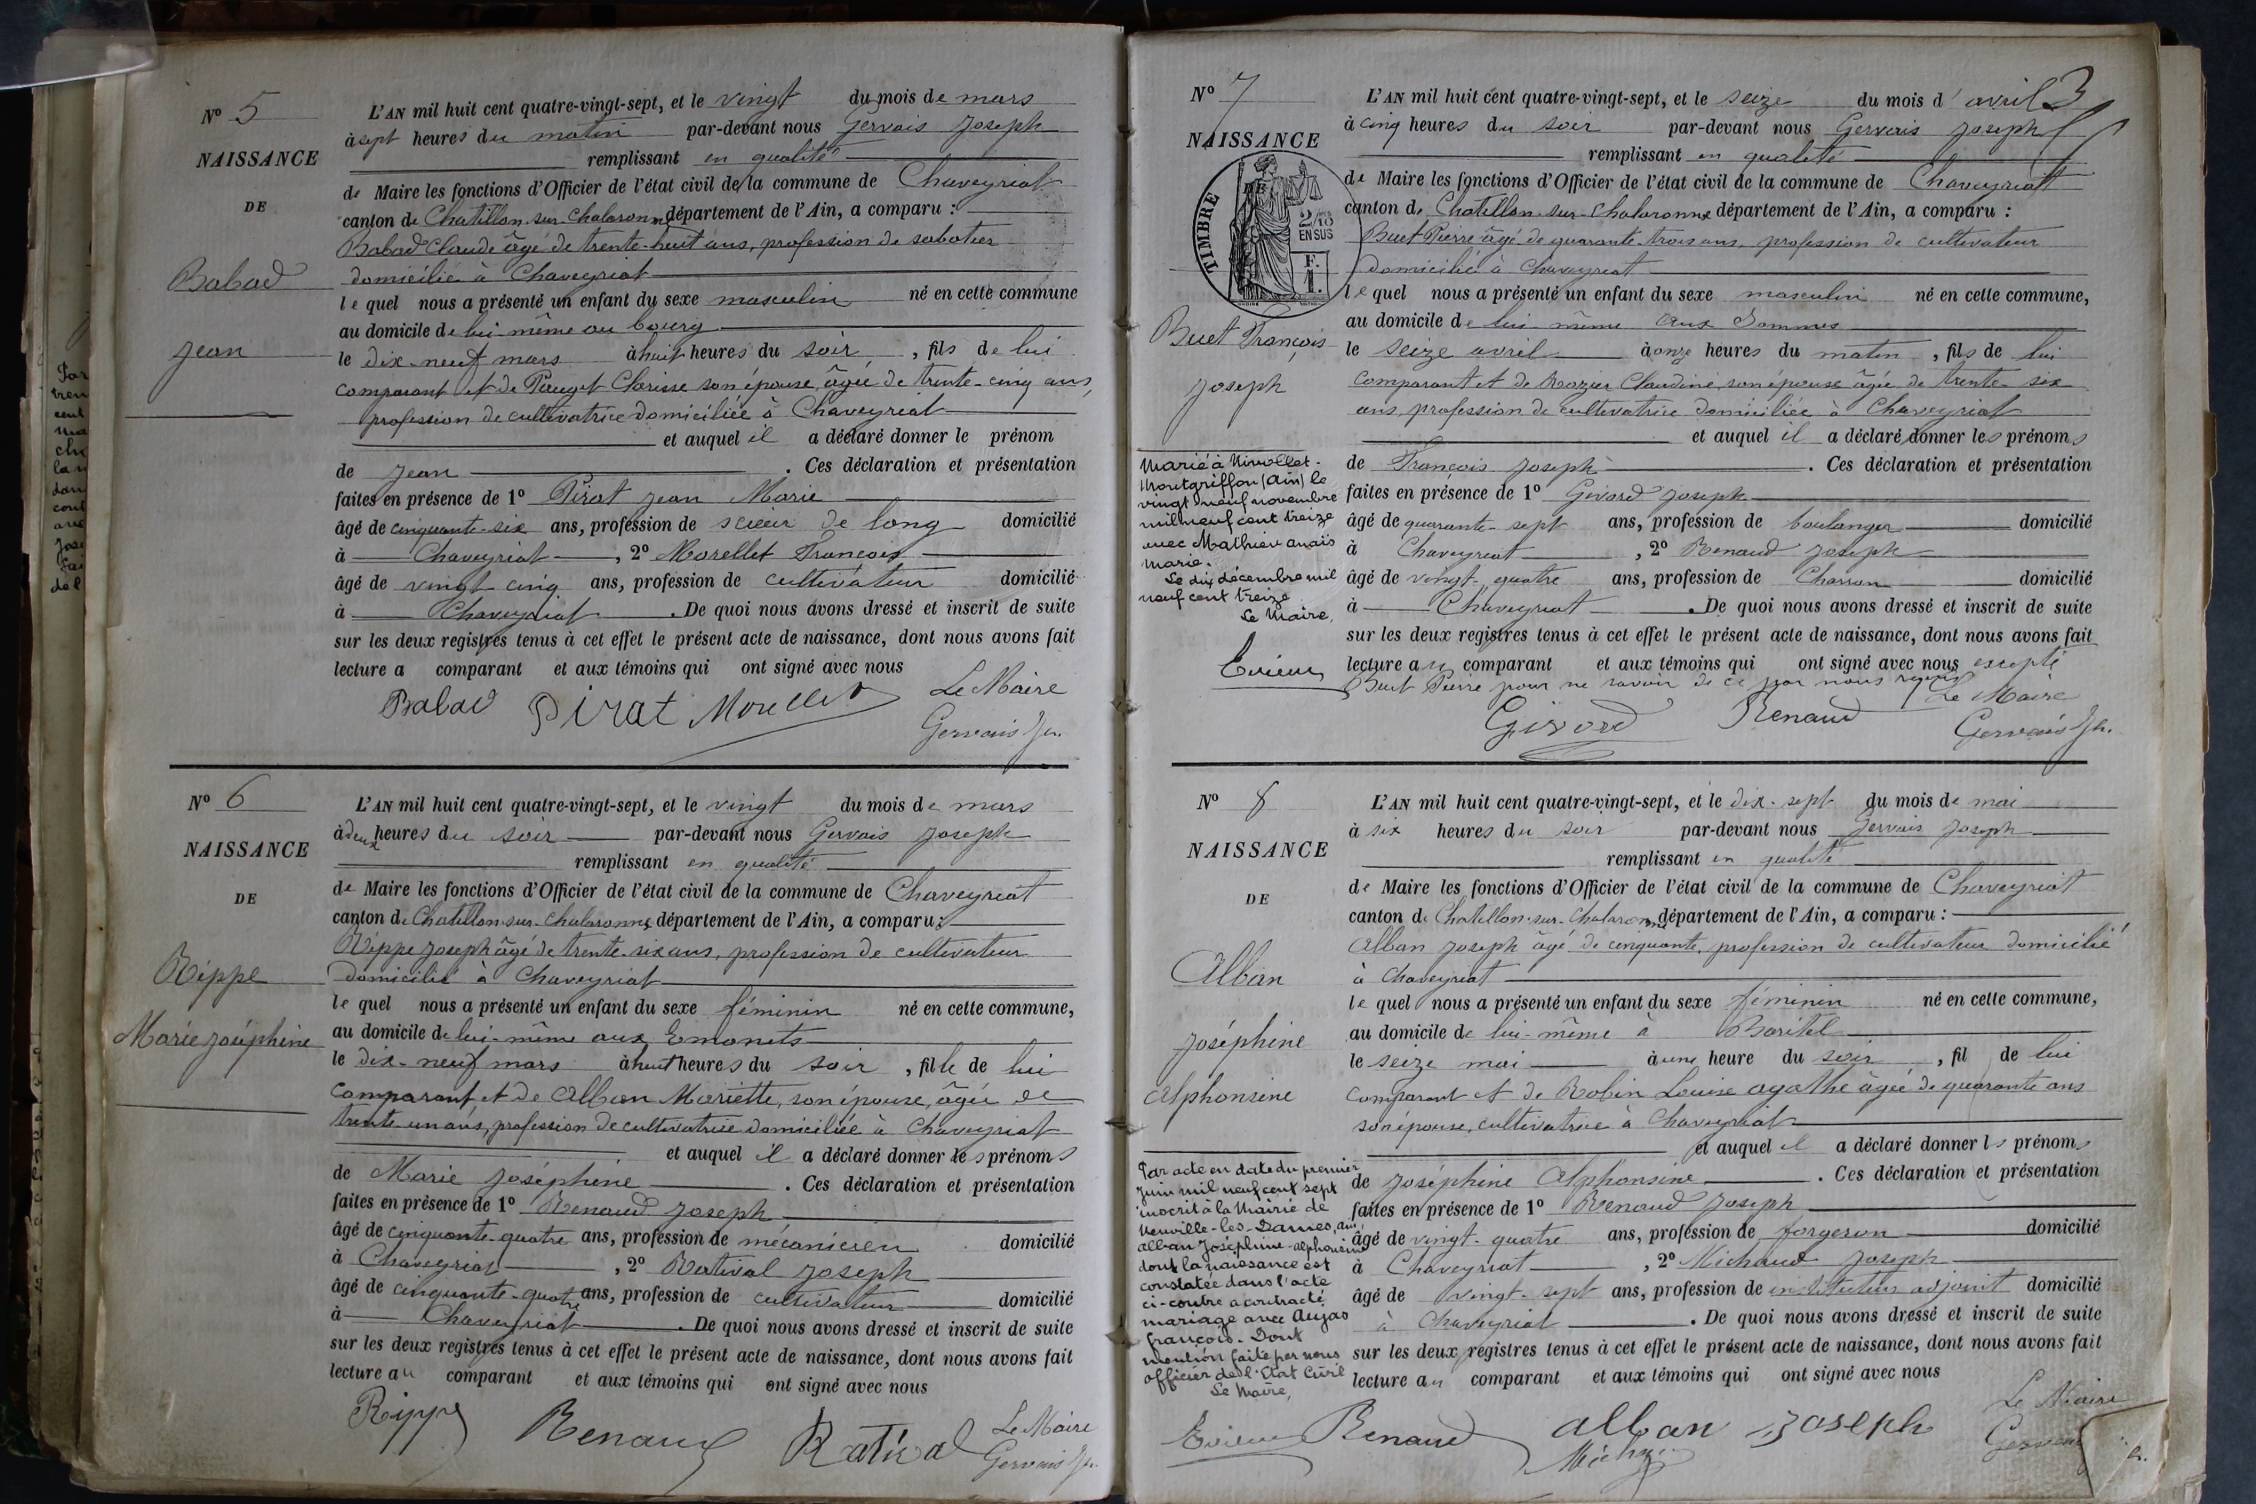 Nº 5
NAISSANCE
DE
Babad
Jean
L'AN mil huit cent quatre-vingt-sept, et le vingt du mois de mars
à sept heures du matin par-devant nous Gervais Joseph
remplissant en qualité
de Maire les fonctions d'Officier de l'état civil de la commune de Chaveyriat
canton de Chatillon-sur-Chalaronne département de l'Ain, a comparu :
Babad Claude âgé de trente-huit ans, profession de sabotier
domicilié à Chaveyriat
lequel nous a présenté un enfant du sexe masculin né en cette commune
au domicile de lui-même au bourg
le dix-neuf mars à huit heures du soir, fils de lui
comparant et de Pauget Clarisse son épouse, âgée de trente-cinq ans,
profession de cultivatrice domiciliée à Chaveyriat
et auquel il a déclaré donner le prénom
de Jean. Ces déclaration et présentation
faites en présence de 1º Pirat Jean Marie
âgé de cinquante-six ans, profession de scieur de long domicilié
à Chaveyriat, 2º Morellet François
âgé de vingt cinq ans, profession de cultivateur domicilié
à Chaveyriat. De quoi nous avons dressé et inscrit de suite
sur les deux registres tenus à cet effet le présent acte de naissance, dont nous avons fait
lecture a comparant et aux témoins qui ont signé avec nous
Babad Pirat Morellet Le Maire
Gervais Jh.
Nº 6
NAISSANCE
DE
Rippe
Marie Joséphine
L'AN mil huit cent quatre-vingt-sept, et le vingt du mois de mars
à deux heures du soir par-devant nous Gervais Joseph
remplissant en qualité
de Maire les fonctions d'Officier de l'état civil de la commune de Chaveyriat
canton de Chatillon-sur-Chalaronne département de l'Ain, a comparu :
Rippe Joseph âgé de trente-six ans, profession de cultivateur
domicilié à Chaveyriat
lequel nous a présenté un enfant du sexe féminin né en cette commune,
au domicile de lui-même aux Emonets
le dix-neuf mars à huit heures du soir, fille de lui
comparant et de Alban Mariette, son épouse, âgée de
trente-un ans, profession de cultivatrice domiciliée à Chaveyriat
et auquel il a déclaré donner les prénoms
de Marie Joséphine. Ces déclaration et présentation
faites en présence de 1º Renaud Joseph
âgé de cinquante-quatre ans, profession de mécanicien domicilié
à Chaveyriat, 2º Rativel Joseph
âgé de cinquante-quatre ans, profession de cultivateur domicilié
à Chaveyriat. De quoi nous avons dressé et inscrit de suite
sur les deux registres tenus à cet effet le présent acte de naissance, dont nous avons fait
lecture au comparant et aux témoins qui ont signé avec nous
Rippe Renaud Rativel Le Maire
Gervais Jh.
3
Nº 7
NAISSANCE
DE
TIMBRE
2/10 EN SUS
F. 1.
Buet François
Joseph
L'AN mil huit cent quatre-vingt-sept, et le seize du mois d'avril
à cinq heures du soir par-devant nous Gervais Joseph
remplissant en qualité
de Maire les fonctions d'Officier de l'état civil de la commune de Chaveyriat
canton de Chatillon-sur-Chalaronne département de l'Ain, a comparu :
Buet Pierre âgé de quarante-trois ans, profession de cultivateur
domicilié à Chaveyriat
lequel nous a présenté un enfant du sexe masculin né en cette commune,
au domicile de lui-même aux Sommes
le seize avril à onze heures du matin, fils de lui
comparant et de Rozier Claudine, son épouse âgée de trente-six
ans, profession de cultivatrice domiciliée à Chaveyriat
et auquel il a déclaré donner les prénoms
de François Joseph. Ces déclaration et présentation
faites en présence de 1º Givord Joseph
âgé de quarante-sept ans, profession de boulanger domicilié
à Chaveyriat, 2º Renaud Joseph
âgé de vingt-quatre ans, profession de Charron domicilié
à Chaveyriat. De quoi nous avons dressé et inscrit de suite
sur les deux registres tenus à cet effet le présent acte de naissance, dont nous avons fait
lecture au comparant et aux témoins qui ont signé avec nous excepté
Buet Pierre pour ne savoir de ce par nous requis
Givord Renaud Le Maire
Gervais Jh.
Marié à Nivollet-
Montgriffon (Ain) le
vingt neuf novembre
mil neuf cent treize
avec Mathieu Anaïs
Marie.
Le dix décembre mil
neuf cent treize
Le Maire,
Evieux
Nº 8
NAISSANCE
DE
Alban
Joséphine
Alphonsine
L'AN mil huit cent quatre-vingt-sept, et le dix-sept du mois de mai
à six heures du soir par-devant nous Gervais Joseph
remplissant en qualité
de Maire les fonctions d'Officier de l'état civil de la commune de Chaveyriat
canton de Chatillon-sur-Chalaronne département de l'Ain, a comparu :
Alban Joseph âgé de cinquante, profession de cultivateur domicilié
à Chaveyriat
lequel nous a présenté un enfant du sexe féminin né en cette commune,
au domicile de lui-même à Baritel
le seize mai à une heure du soir, fil de lui
comparant et de Robin Louise Agathe âgée de quarante ans
son épouse, cultivatrice à Chaveyriat
et auquel il a déclaré donner ls prénoms
de Joséphine Alphonsine. Ces déclaration et présentation
faites en présence de 1º Renaud Joseph
âgé de vingt-quatre ans, profession de forgeron domicilié
à Chaveyriat, 2º Michaud Joseph
âgé de vingt-sept ans, profession de instituteur adjoint domicilié
à Chaveyriat. De quoi nous avons dressé et inscrit de suite
sur les deux registres tenus à cet effet le présent acte de naissance, dont nous avons fait
lecture au comparant et aux témoins qui ont signé avec nous
Le Maire
Renaud alban joseph Gervais
Par acte en date du premier
juin mil neuf cent sept
inscrit à la Mairie de
Neuville-les-Dames, Ain,
Alban Joséphine-Alphonsine
dont la naissance est
constatée dans l'acte
ci-contre a contracté
mariage avec Aujas
François. Dont
mention faite par nous
officier de l'Etat Civil
Le Maire,
Evieux